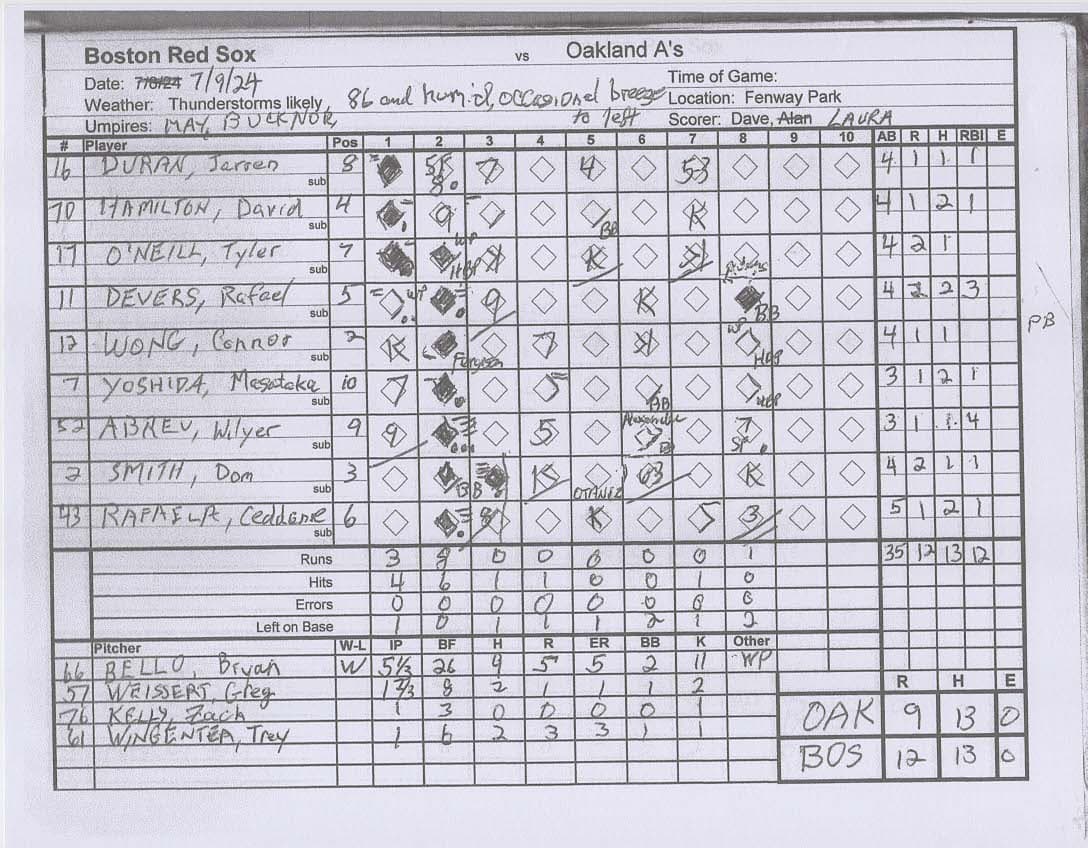 Boston Red Sox vs Oakland A's
Date: 7/8/24 7/9/24 Time of Game:
Weather: Thunderstorms likely, 86 and humid, occasional breeze to left Location: Fenway Park
Umpires: MAY, BUCKNOR, Scorer: Dave, Alan LAURA
# Player Pos 1 2 3 4 5 6 7 8 9 10 AB R H RBI E
16 DURAN, Jarren 8 58 8 7 4 53 4 1 1 1
sub
70 HAMILTON, David 4 9 BB K 4 1 2 1
sub
17 O'NEILL, Tyler 7 WP HBP K K K 4 2 1
sub
11 DEVERS, Rafael 5 WP 9 K BB 4 2 2 3
sub
PB
12 WONG, Connor 2 K Ferguson 7 K WP HBP 4 1 1
sub
7 YOSHIDA, Masataka 10 7 BB HBP 3 1 2 1
sub
52 ABREU, Wilyer 9 9 5 Alexander 7 SF 3 1 1 4
sub
2 SMITH, Dom 3 BB K OTANEZ 63 K 4 2 1 1
sub
43 RAFAELA, Ceddanne 6 8 K 5 3 5 1 2 1
sub
Runs 3 8 0 0 0 0 0 1 35 12 13 12
Hits 4 6 1 1 0 0 1 0
Errors 0 0 0 0 0 0 0 0
Left on Base 1 0 1 1 1 2 1 2
Pitcher W-L IP BF H R ER BB K Other
66 BELLO, Bryan W 5 1/3 26 9 5 5 2 11 WP
57 WEISSERT, Greg 1 2/3 8 2 1 1 1 2
76 KELLY, Zach 1 3 0 0 0 0 1
61 WINGENTER, Trey 1 6 2 3 3 1 1
R H E
OAK 9 13 0
BOS 12 13 0